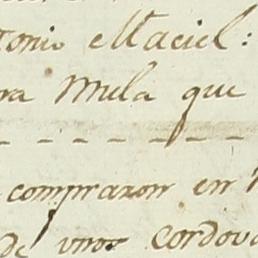 tonio Maciel:
ra Mula que
compraron en
de unos Cordova